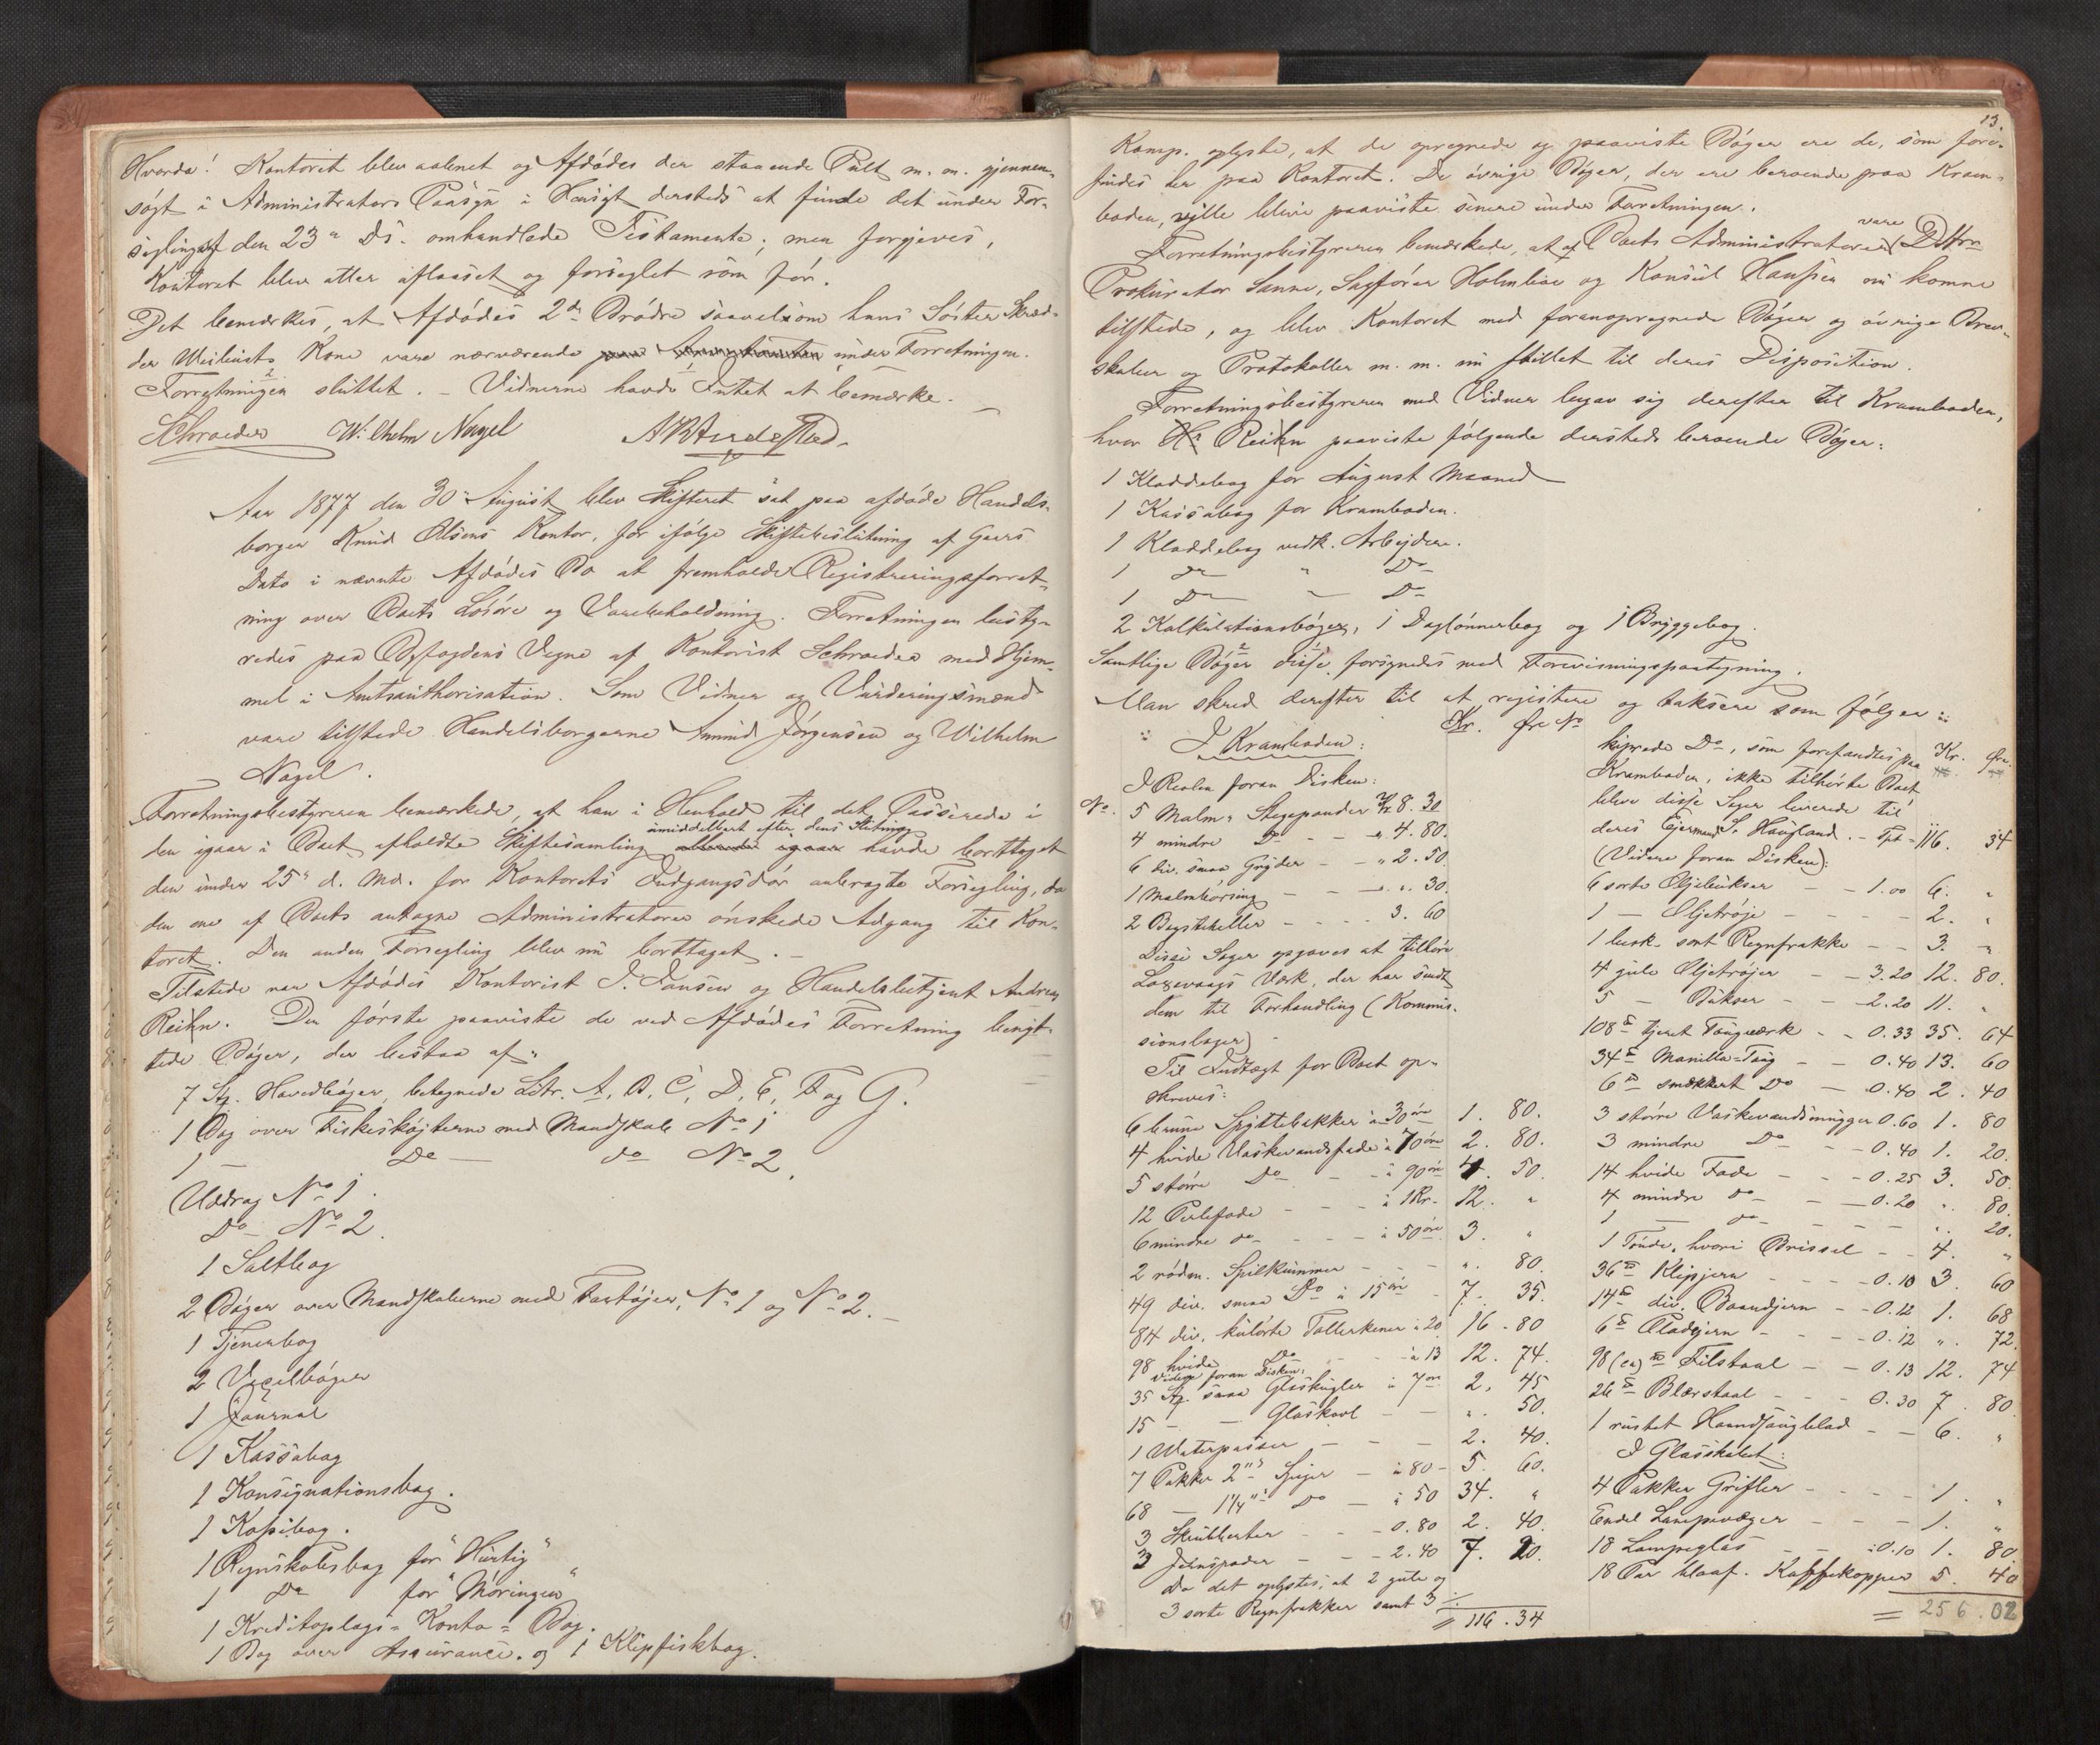 Hverda! Kontoret blev aabnet og Afdødes der staaende Pult m. m. gjennem-
søgt i Administrators Paasyn i Hensigt dersteds at finde det under For-
seglings af den 23de ds. omhandlede Testamente; men forgjeves,
Kontoret blev atter aflaaset og forseglet som før.
Det bemærkes, at Afdødes 2de Brødre saavelsom hans Søster Skræd-
der Weiluists Kone vare nærværende under Forretningen.
Forretningen sluttet. – Vidnerne havde Intet at bemærke.
Schroeder Wilhelm Nagel
Aar 1877 den 30 August blev Skifteret sat paa afdøde Handels-
borger Knud Olsens Kontor, for ifølge Skiftebeslutning af Gaars
Dato i nævnte Afdødes Bo at fremholde Registreringsforret-
ning over Boets Løsøre og Varebeholdning. Forretningen besty-
redes paa Byfogdens Vegne af Kontorist Schroeder med Hjem-
mel i Amtsauthorisation. Som Vidner og Vurderingsmænd
vare tilstede Handelsborgerne Amund Jørgensen og Wilhelm
Nagel.
Forretningsbestyreren bemærkede, at han i Henhold til det Passerede i
den igaar i Boet afholdte Skiftesamling umiddelbart efter dens Slutning havde borttaget
den under 25de d. Md. for Kontorets Indgangsdør anbragte Forsegling, da
den ene af Boets antagne Administratorer ønskede Adgang til Kon-
toret. Den anden Forsegling blev nu borttaget. –
Tilstede var Afdødes Kontorist J. Jansen og Handelsbetjent Andreas
Reihn. Den første paaviste de ved Afdødes Forretning benyt-
tede Bøger, der bestaa af:
7 Stk. Hovedbøger, betegnede Litr. A, B, C, D, E, F og G.
1 Bog over Fiskeskøjterne med Mandskab No 1
1 – Do – do No 2.
Uddrag No 1.
Do No 2.
1 Saltbog
2 Bøger over Mandskaberne med Fartøjer, No 1 og No 2. –
1 Tjenerbog
2 Vexelbøger
1 Journal
1 Kassabog
1 Konsignationsbog.
1 Kopibog.
1 Regnskabsbog for "Hurtig"
1 Do for "Møringen"
1 Kreditoplags-Konto-Bog.
1 Bog over Assurance. og 1 Klipfiskbog.
13.
Komp. oplyste, at de opregnede og paaviste Bøger ere de, som fore-
findes her paa Kontoret. De øvrige Bøger, der ere beroende paa Kram-
boden, ville blive paaviste senere under Forretningen.
Forretningsbestyreren bemærkede, at af Boets Administratorer vare DHrr
Prokurator Sanne, Sagfører Holmboe og Konsul Hansen nu komne
tilstede, og blev Kontoret med foranopregnede Bøger og øvrige Brev-
skaber og Protokoller m. m. nu stillet til deres Disposition.
Forretningsbestyreren med Vidner begav sig derefter til Kramboden,
hvor Hr Reihn paaviste følgende dersteds beroende Bøger:
1 Kladdebog for August Maaned
1 Kassabog for Kramboden.
1 Kladdebog vedk. Arbejdere.
1 Do " Do
1 Do – Do
2 Kalkulationsbøger, 1 Dagløннerbog og 1 Bryggebog.
Samtlige Bøger disse forsynedes med Forevisningspaategning.
Man skred derefter til at registere og taksere som følger:
Kr. Øre No
I Kramboden:
I Reolen foran Disken:
No. 5 Malm-Stegepander Kr 8. 30
4 mindre Do – – " 4. 80.
6 div. smaa Gryder – – " 2. 50
1 Malmbøsning – – – " . 30.
2 Begstekeller – – – 3. 60
Disse Sager opgaves at tilhøre
Laxevaags Værk, der har sendt
dem til Forhandling (Kommis-
sionslager) –
Til Indtægt for Boet op-
skreves:
6 brune Spyttebakker à 30 øre 1. 80.
4 hvide Vaskevandsfade à 70 øre 2. 80.
5 større Do – – à 90 øre 4. 50.
12 Perlefade – – – à 1 Kr. 12. "
6 mindre do – – – à 50 øre 3. "
2 røde Spilkummer – – – ". 80.
49 div. smaa Do à 15 øre – 7. 35.
84 div. kulørte Tallerkener à 20 16 . 80
98 hvide Do – à 13 12. 74.
Videre foran Disken:
35 Stk. smaa Glaskugler à 7 øre 2, 45
15 – – Glaskavl – – ". 50.
1 Waterpasser – – – 2. 40.
7 Pakker 2" Spiger – à 80 – 5. 60.
68 – 1¼" Do – à 50 34. "
3 Skrubberter – – 0.80 2. 40.
3 Jernspader – – – 2.40 7. 20.
Da det oplystes, at 2 gule og
3 sorte Regnfrakker samt 3 ./.
= 116 . 34
Kr. Øre
kiprede Do, som forefandtes paa
Kramboden, ikke tilhørte Boet
bleve disse Sager leverede til
deres Ejermand S. Haugland. – Tpt = 116. 34
(Videre foran Disken):
6 sorte Oljebukser – – 1.00 6. "
1 – Oljetrøje – – – – 2. "
1 brugt sort Regnfrakke – – 3. "
4 gule Oljetrøjer – – 3.20 12. 80.
5 – Bukser – – 2.20 11. "
108 tt tjeret Taugværk – – 0.33 35. 64
34 tt Manilla-Taug – – 0.40 13. 60
6 tt smækkert Do – 0.40 2. 40
3 større Vaskevandsmugger 0.60 1. 80
3 mindre Do – 0.40 1. 20.
14 hvide Fade – – – 0.25 3. 50.
4 mindre do – – – 0.20 ". 80.
1 – do – – – – ". 20.
1 Tønde, hvori Brissel – – 4. "
36 tt Klipjern – – – 0.10 3. 60
14 tt div. Baandjern – – 0.12 1. 68
6 tt Pladejern – – – 0.12 ". 72.
98 (ca) tt Filstaal – – 0.13 12. 74
26 tt Blærstaal – – – 0.30 7. 80.
1 rustet Haandsaugblad – – 6. "
I Glasskabet:
4 Pakker Grifler – – – – 1. "
Endel Lampevæger – – – 1. "
18 Lampeglas – – à 0.10 1. 80
18 Par blaaf. Kaffekopper 5. 40
= 256.02